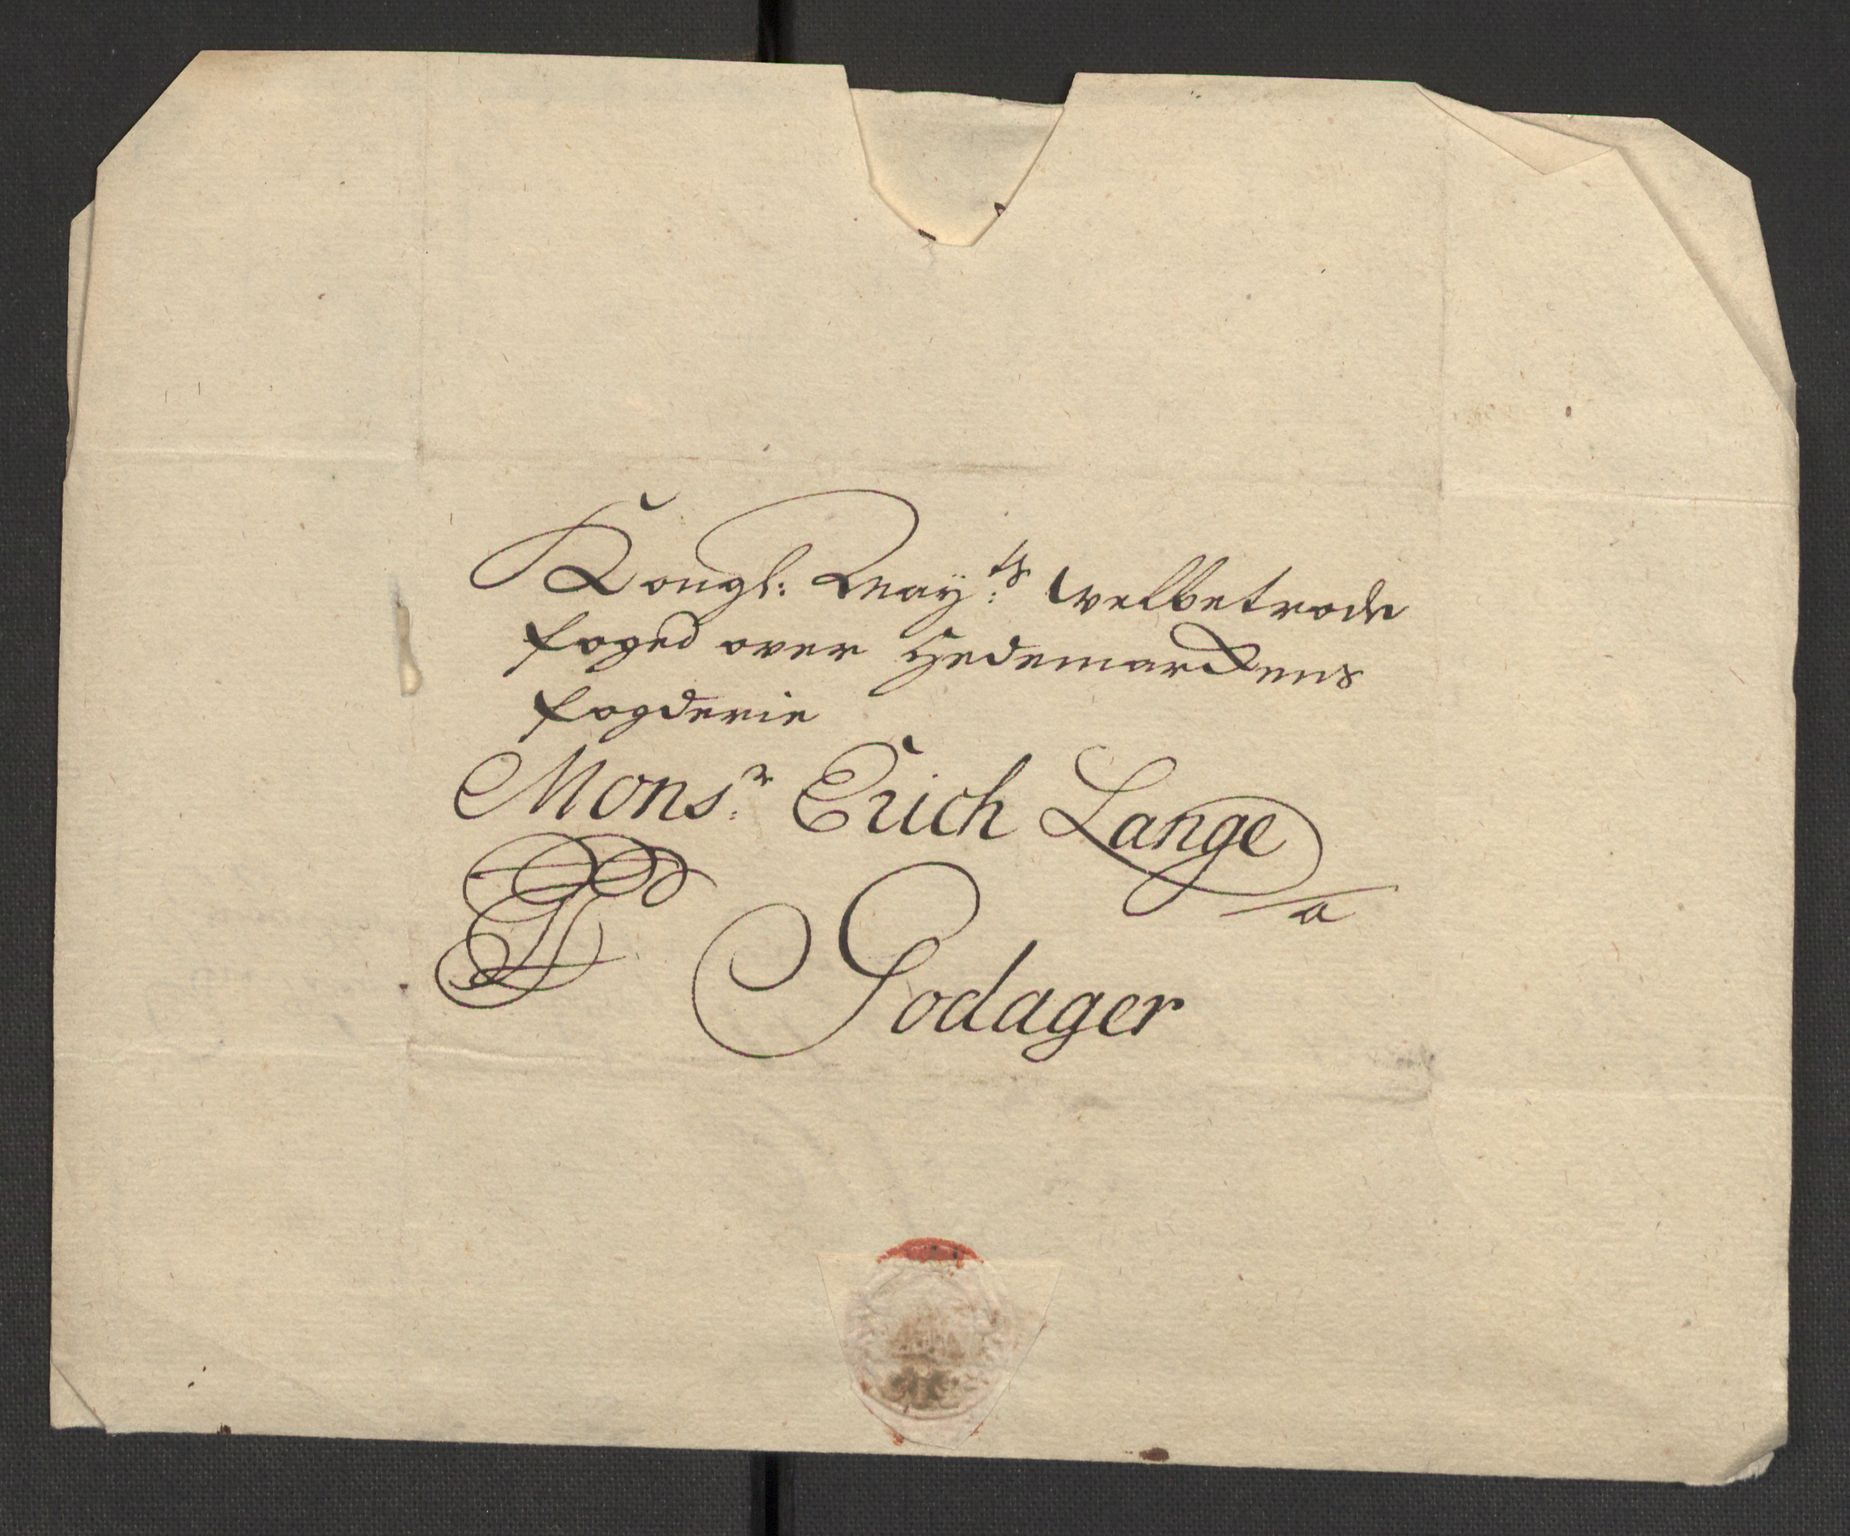 Kongl: Mayᵗˢ: welbetrode
foged over Hedemarkens
fogderie
Monsʳ: Erich Lange
a
Godager